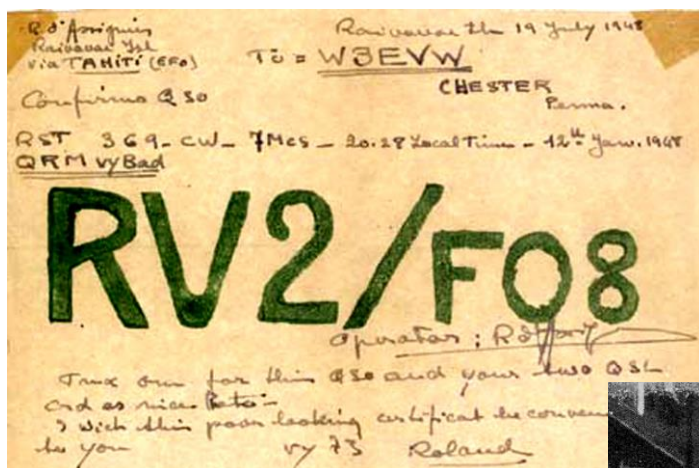 R. d'Assignies
Raivavae Isl
via TAHITI (EFO)
Raivavae the 19 July 1948
To = W3EVW
CHESTER
Penna.
Confirms QSO
RST 369 - CW - 7Mcs - 20.28 Local Time - 12th Janv. 1948
QRM vy Bad
RV2/FO8
Operator :
Tnux om for this QSO and your two QSL
crd as nice
I wich this poor looking certificat be
to you vy 73 Roland